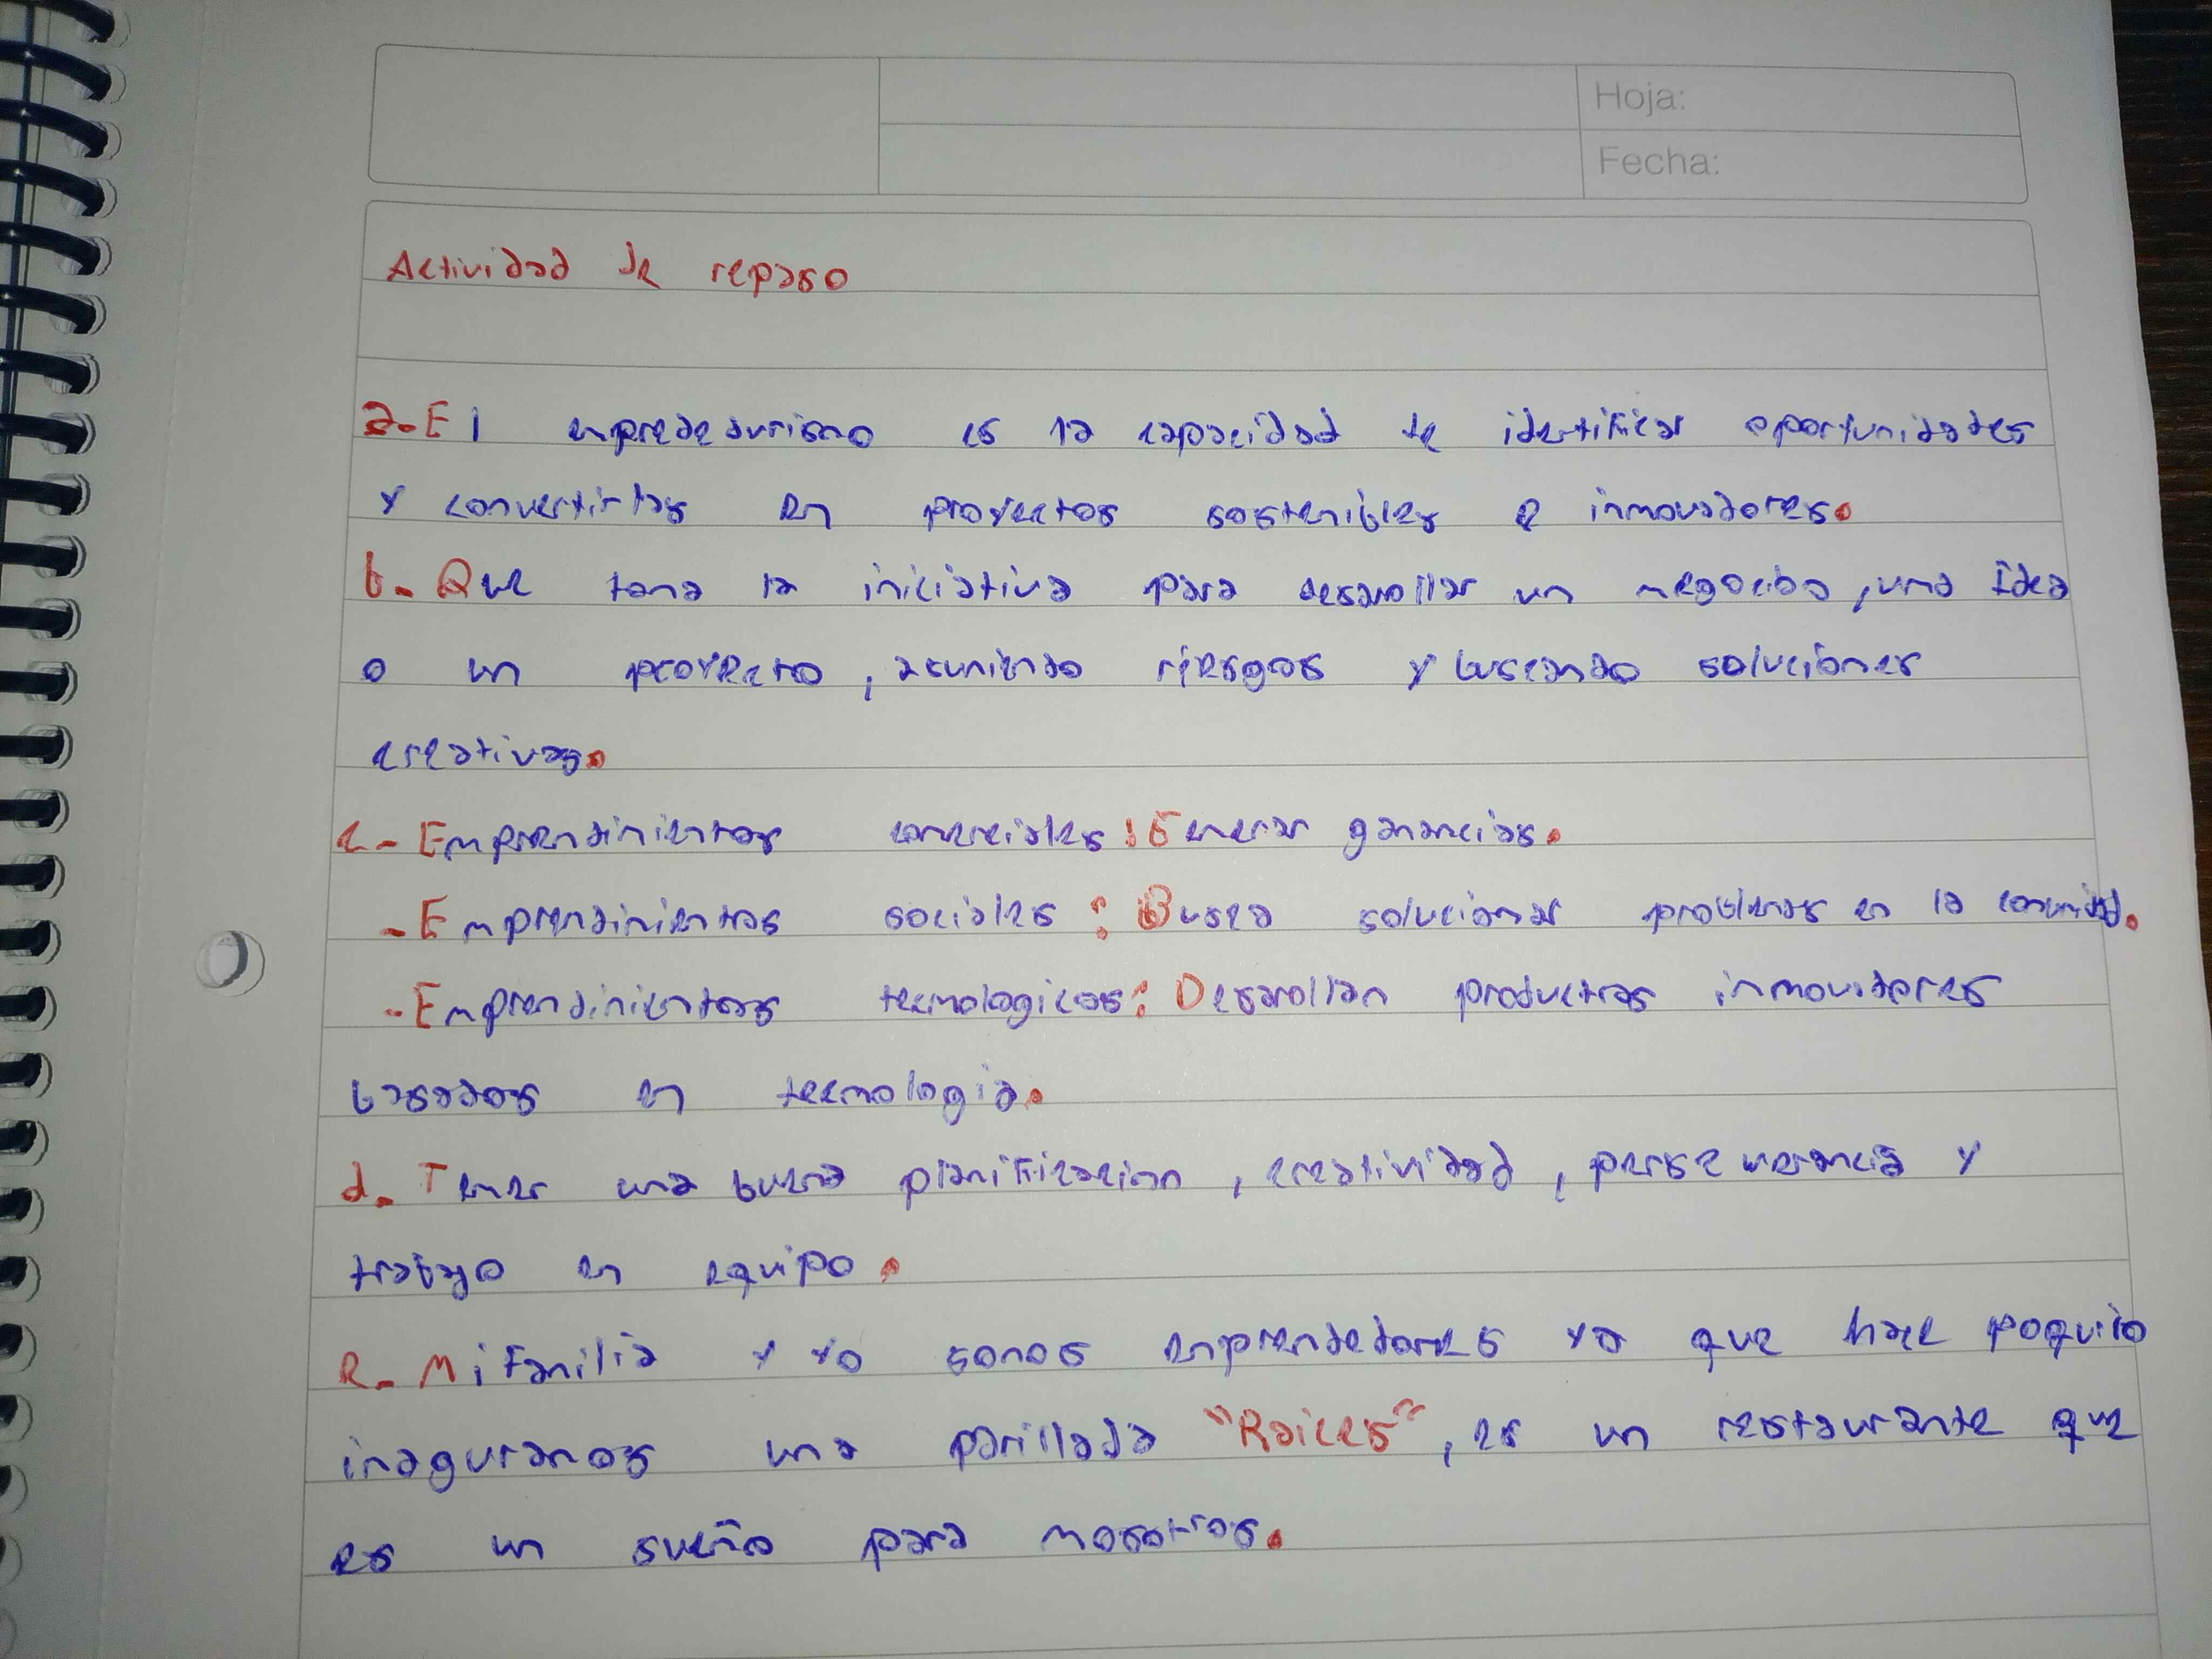 Hoja:
Fecha:
Actividad de repaso
a-El empredeturismo es la capacidad de identificar oportunidades
y convertirlas en proyectos sostenibles e innovadores.
b- Que toma la iniciativa para desarollar un negocion, una idea
o un proyecto, asumiendo riesgos y buscando soluciones
creativas.
c- Emprendimientos comerciales: Generar ganancias.
-Emprendimientos sociales: Busca solucionar problemas en la comunidad.
-Emprendimientos tecnologicos: Desarollan productos innovadores
basados en tecnologia.
d- Tener una buena planificacion, creatividad, perseverancia y
trabajo en equipo.
e- Mi familia y yo somos emprendedores ya que hace poquito
inaguramos una parillada "Raices", es un restaurante que
es un sueño para nosotros.